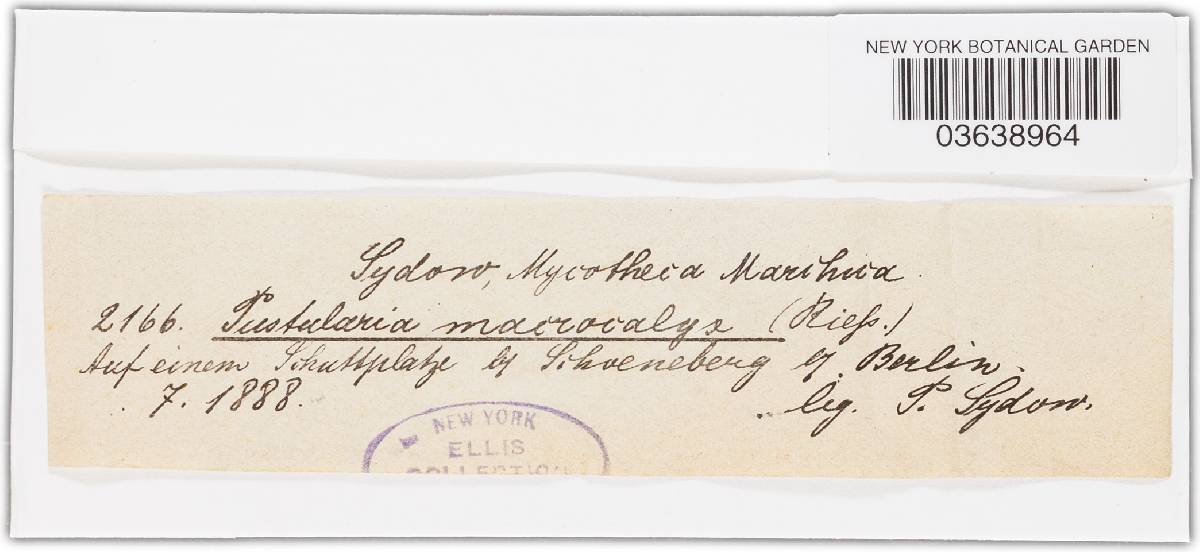 NEW YORK BOTANICAL GARDEN
03638964
Sydow, Mycotheca Marchica
2166. Pustularia macrocalyx (Riess.)
Auf einem Schuttplatze bei Schoeneberg bei Berlin.
7. 1888.
leg. P. Sydow.
NEW YORK
ELLIS
COLLECTION